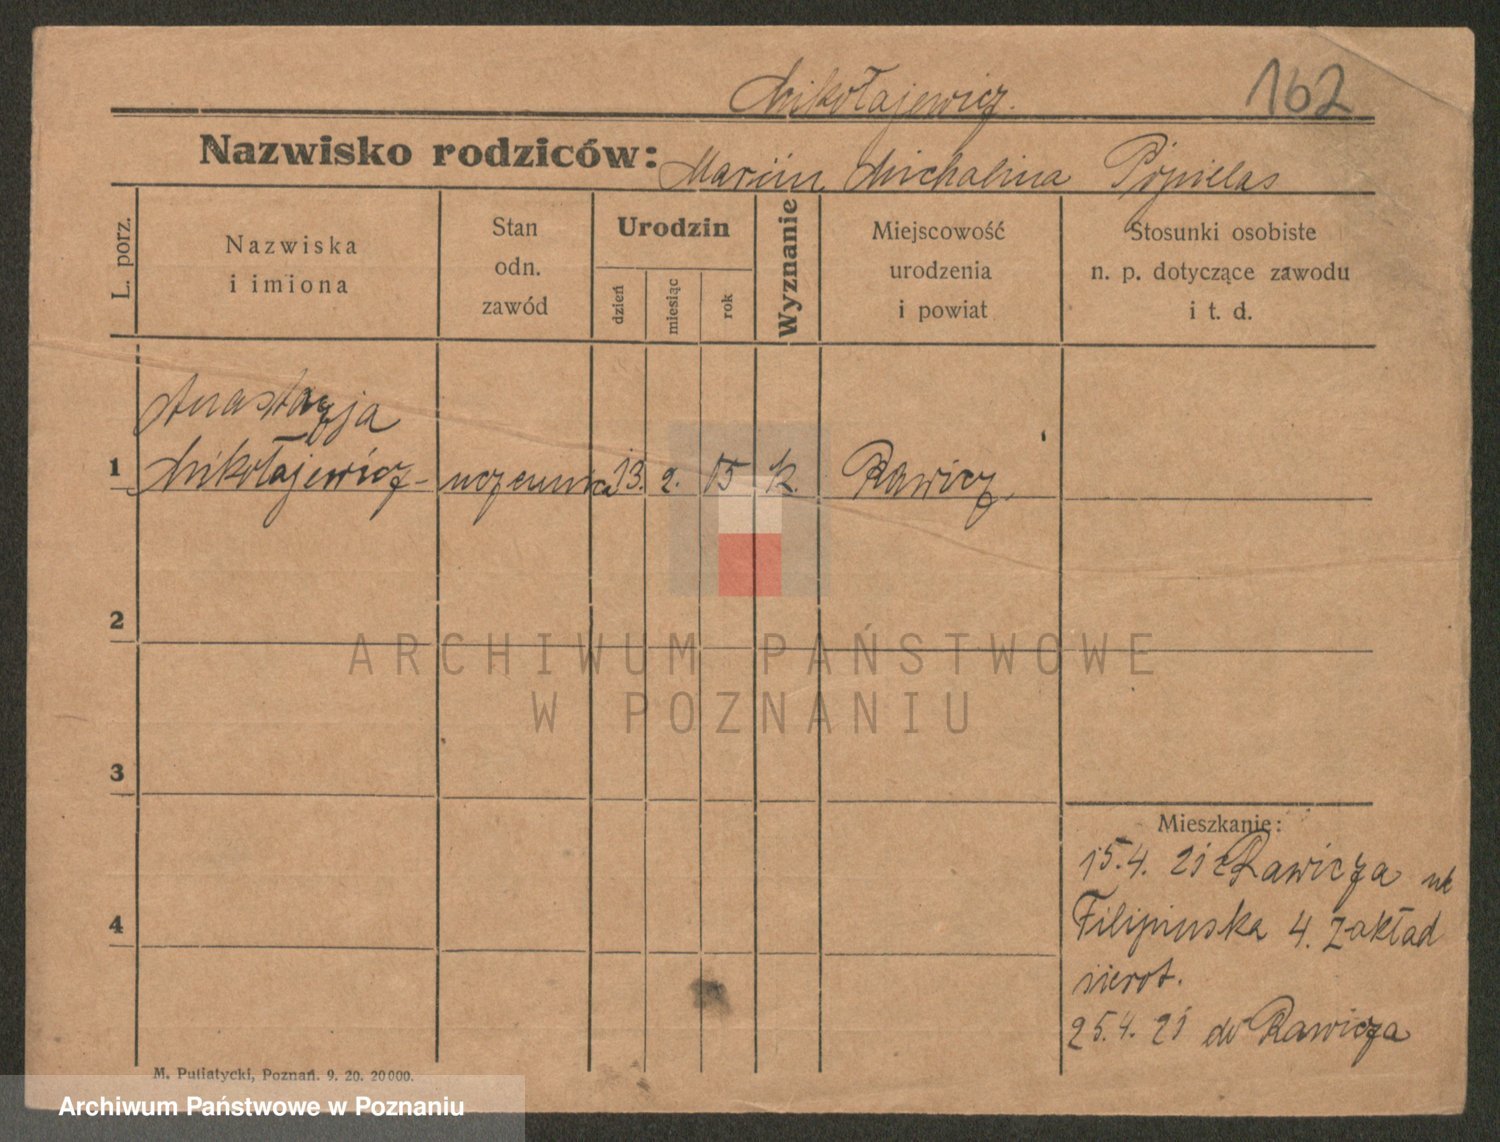 Mikołajewicz.
162
Nazwisko rodziców: Marcin Michalina Popielas
L. porz.
Nazwiska
i imiona
Stan
odn.
zawód
Urodzin
dzień
miesiąc
rok
Wyznanie
Miejscowość
urodzenia
i powiat
Stosunki osobiste
n. p. dotyczące zawodu
i t. d.
Anastazja
1 Mikołajewicz uczennica 13. 2. 15 k. Rawicz
2
ARCHIWUM PAŃSTWOWE
W POZNANIU
3
Mieszkanie:
15.4. 21 z Rawicza
4 Filipińska 4. Zakład
sierot.
25.4. 21 do Rawicza
M. Putiatycki, Poznań. 9. 20. 20000.
Archiwum Państwowe w Poznaniu